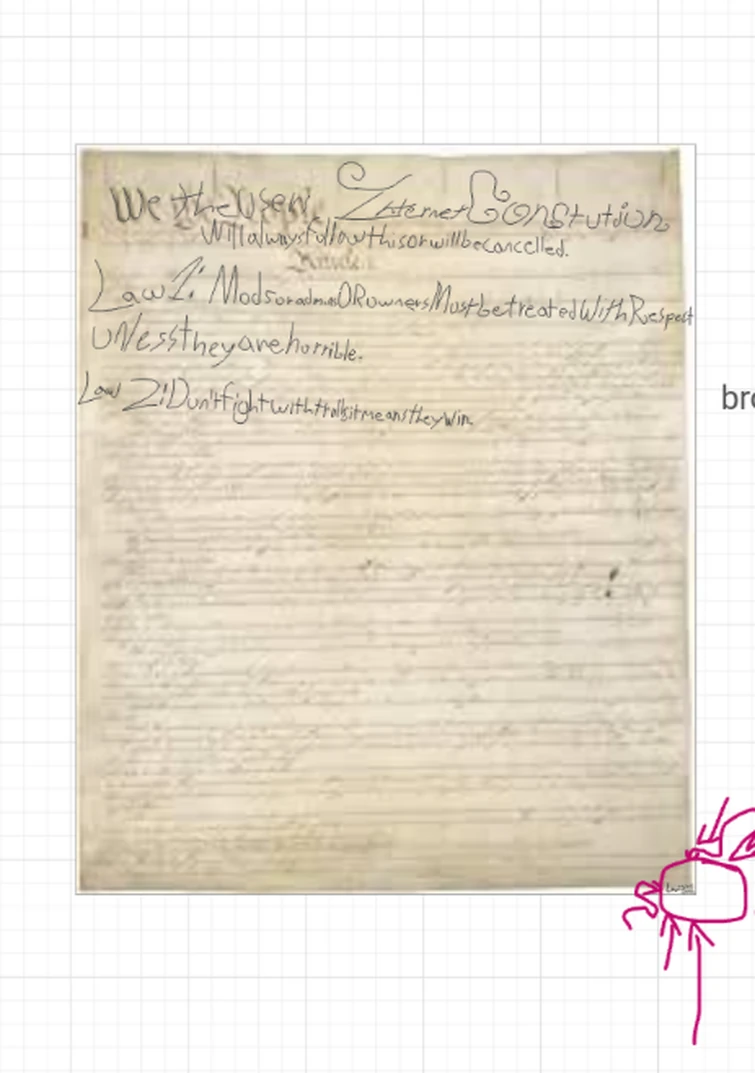 We the Usen Internet Constution
Willalwaysfollowthisorwillbecancelled.
Law 1: ModsoradminsORownersMustbetreatedWithRespect
UNlesstheyarehorrible.
Law 2: Dun'tfightwithtrollsitmeanstheywin
bro